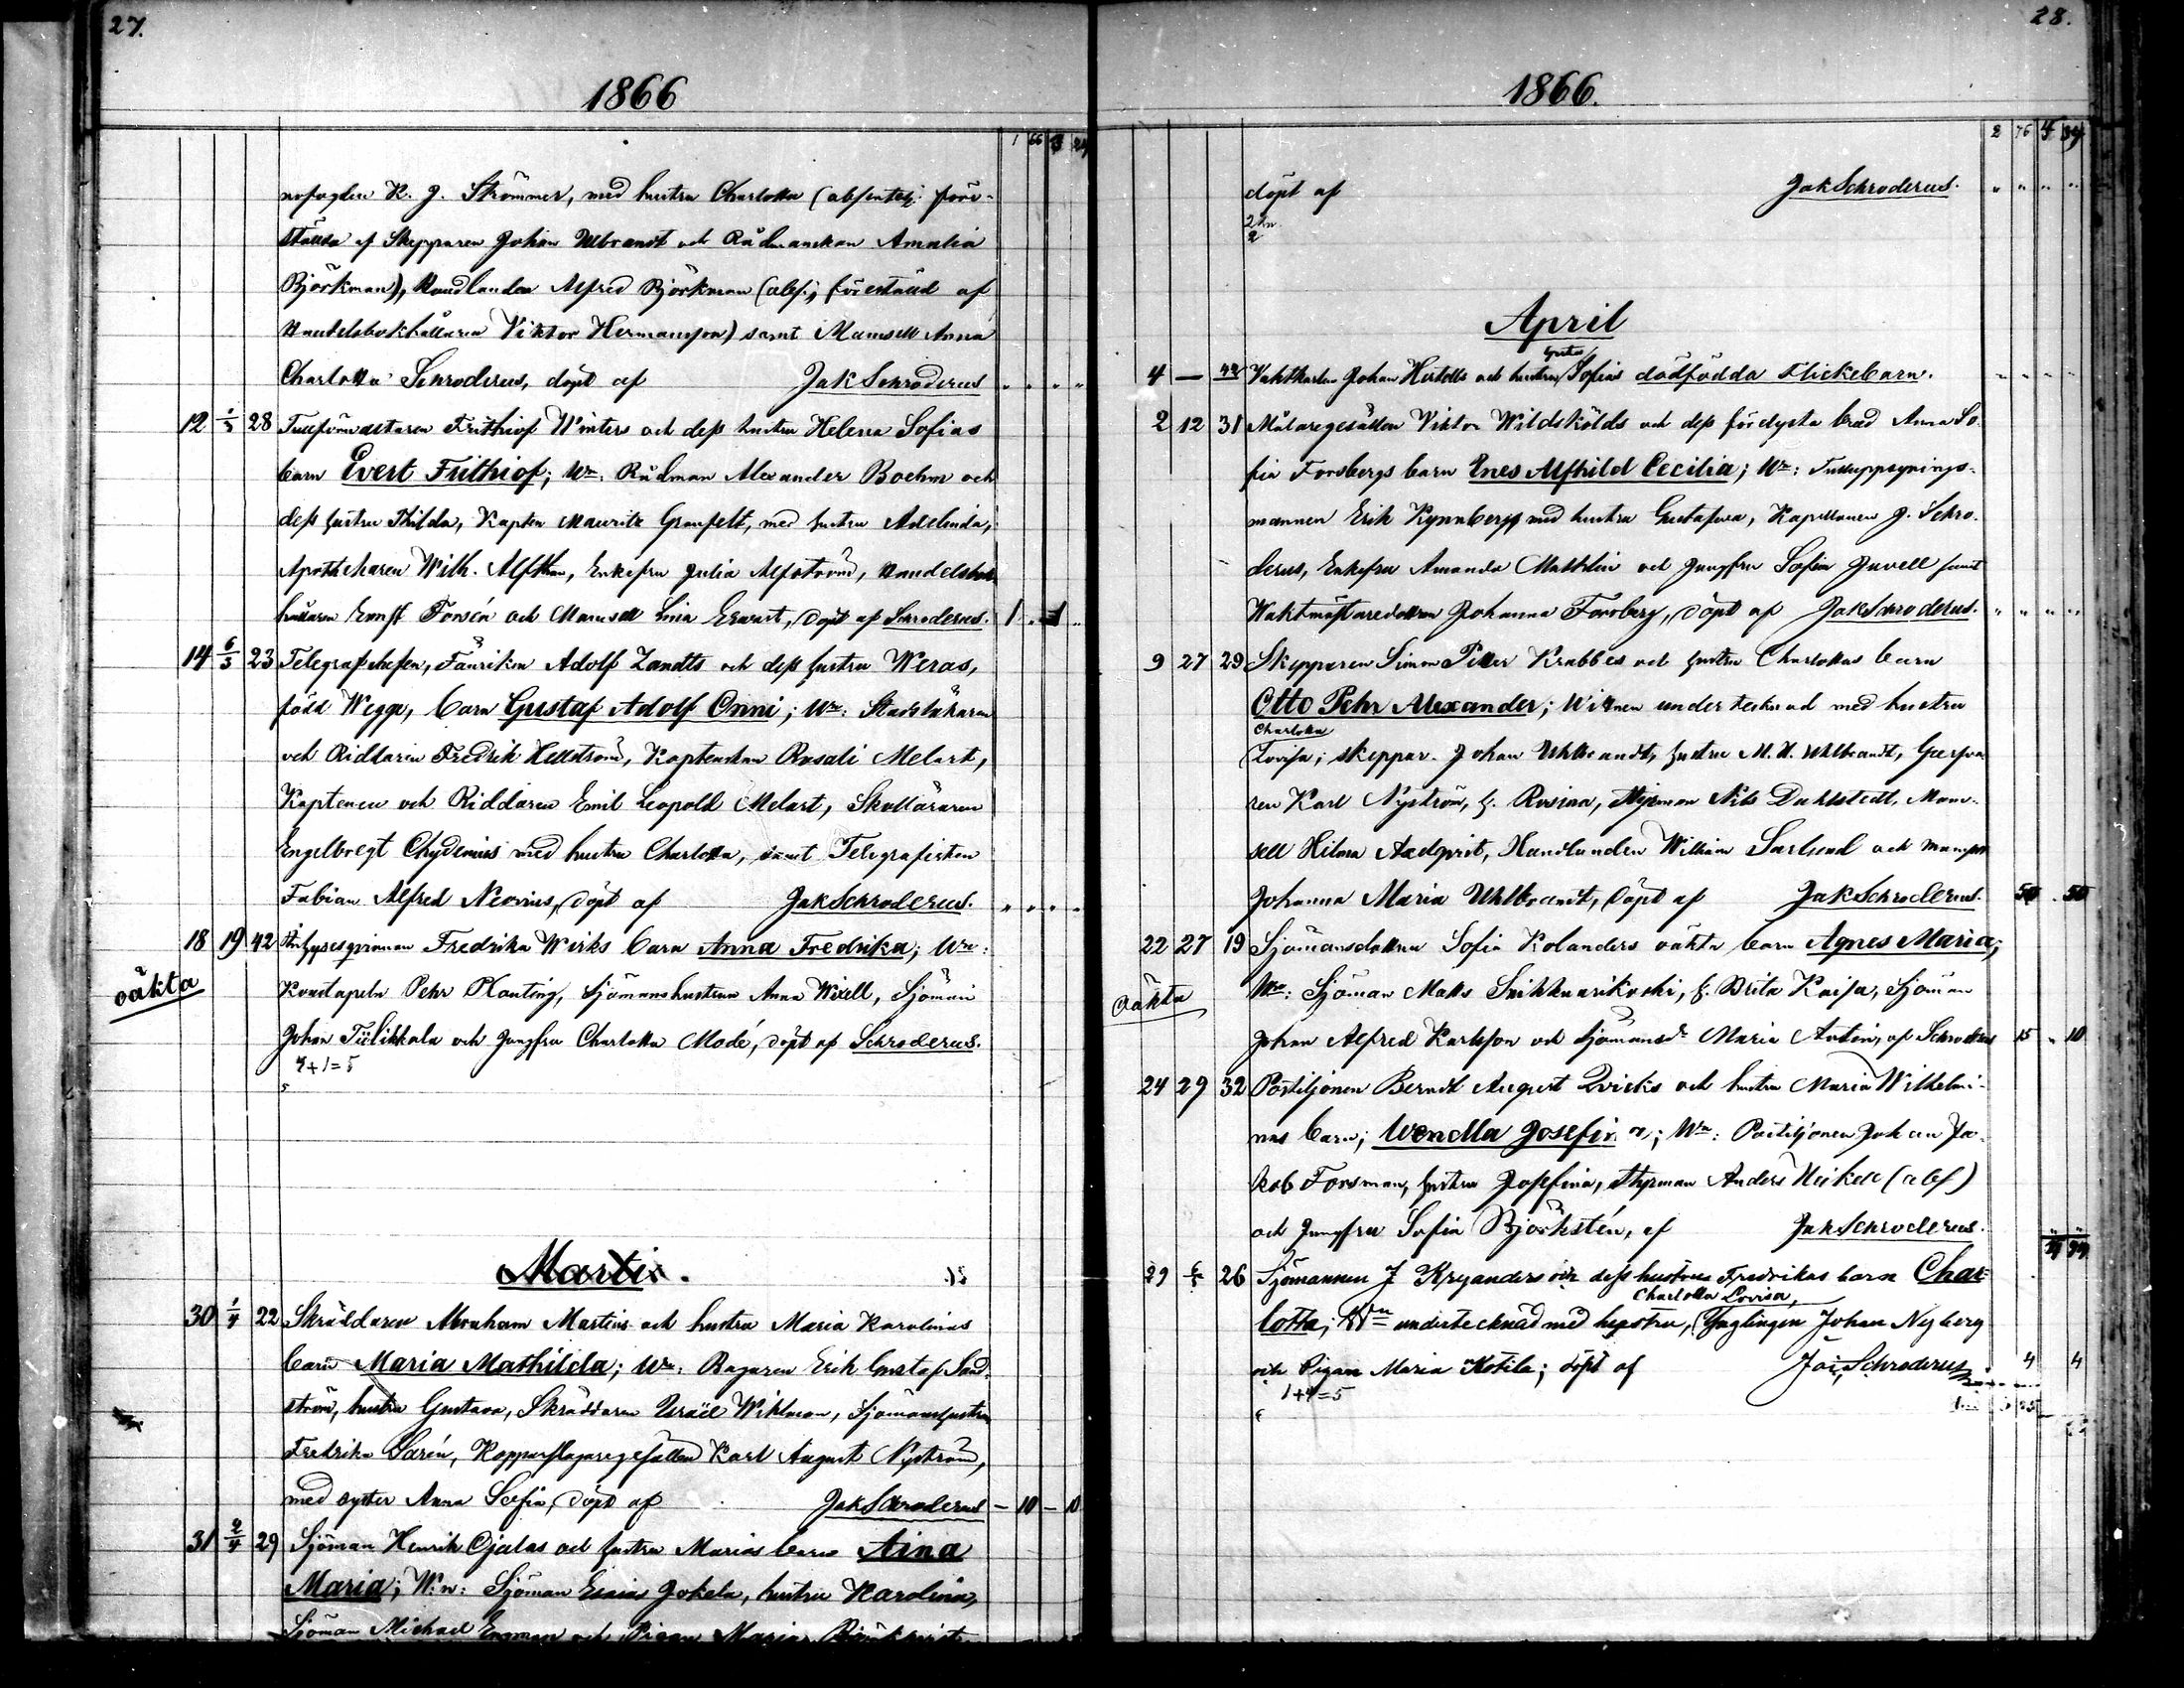 27.
1866
1 66
K. J. Strömmer, med hustru Charlotta (
af Skepparen Johan Uhlbrandt och Rådmanskan Amalia
Björkman), Handlanden Alfred Björkman (abs:, företrädd af
Handelsbokhållaren Viktor Hermansson) samt Mamsell Anna
Charlotta Schroderus, döpt af Jak Schroderus
12 1/3 28 Tullförvaltaren Frithiof Winters och dess hustru Helena Sofias
barn Evert Frithiof; Wn: Rådman Alexander Boehm och
dess hustru Thilda, Kapten Mauritz Granfelt, med hustru Adelinda,
Apothekaren Wilh. Alfthan, Enkefru Julia Alfström, Handelsbok
hållaren Ernst Forsén och Mamsell Lina Ervast, döpt af Schroderus. 1 1
14 6/3 23 Telegrafchefen, Fänriken Adolf Zandts och dess hustru Weras,
född Wegge, barn Gustaf Adolf Onni; Wn: Stadsläkaren
och Riddaren Fredrik Hellström, Kaptenskan Rosali Melart,
Kaptenen och Riddaren Emil Leopold Melart, Skolläraren
Engelbregt Chydenius med hustru Charlotta, samt Telegrafisten
Fabian Alfred Neovius, döpt af Jak Schroderus.
18 19 42 Fredrika Wirks barn Anna Fredrika; Wn:
oäkta
Konstapeln Pehr Planting, Sjömanshustrun Anna Wixell, Sjöman
Johan Tulikkala och Jungfru Charlotta Modé, döpt af Schroderus.
4+1=5
5
Martii.
30 1/4 22 Skräddaren Abraham Martins och hustru Maria Karolinas
barn Maria Mathilda; Wn: Bagaren Erik Gustaf Sand
ström, hustru Gustava, Skräddaren Israel Wiklman, Sjömanshustrun
Fredrika Sarén, Kopparslagaregesällen Karl August Nyström,
med syster Anna Sofia, döpt af Jak Schroderus – 10 – 10
31 2/4 29 Sjöman Henrik Ojalas och hustru Marias barn Aina
Maria; W:n: Sjöman Esaias Jokela, hustru Karolina,
Sjöman Michael Engman och Pigan Maria
28.
1866.
2 76
döpt af Jak Schroderus.
2
April
4 — Johan och hustru Sofias dödfödda Flickebarn.
2 12 31 Målaregesällen Viktor Wildskölds och dess förlysta brud Anna So
fia Forsbergs barn Ines Alfhild Cecilia; Wn: Tulluppsynings-
mannen Erik Kynnberg med hustru Gustafva, Kapellanen J. Schro.
derus, Enkefru Amanda Mathlin och Jungfru Sofia Juvell samt
Waktmästaredottren Johanna Forsberg, döpt af Jak Schroderus.
9 27 29 Skepparen Simon Petter Krabbes och hustru Charlottas barn
Otto Pehr Alexander; Witnen undertecknad med hustru
Charlotta
Lovisa; skeppar. Johan Uhlbrandt, hustru M. H. Uhlbrandt,
ren Karl Nyström, h. Rosina, Styrman Nils Dahlstedt, Mam-
sell Hilma Axelqvist, Handlanden William Sarlund och mamsell
Johanna Maria Uhlbrandt, döpt af Jak Schroderus. 50 . 50
22 27 19 Sjömansdottren Sofia Kolanders oäkta barn Agnes Maria;
Oäkta
Wn: Sjöman Matts Snikkarikoski, h. Brita Kaisa, Sjöman
Johan Alfred Karlsson och Sjömansdr Maria Antin, af Schroderus 15 . 10
24 29 32 Postiljonen Berndt August Qvicks och hustru Maria Wilhelmi-
nas barn; Wendla Josefina; Wn: Postiljonen Johan Ja-
kob Forsman, hustru Josefina, Styrman Anders Heikel (abs)
och Jungfru Sofia Björkstén, af Jak Schroderus.
29 26 Sjömannen J Kryanders och dess hustrus Fredrikas barn Char-
Charlotta Lovisa,
lotta; Wn undertecknad med hustru, Ynglingen Johan Nyberg
och Pigan Maria Kotila; döpt af Schroderus 4 4
1+4=5